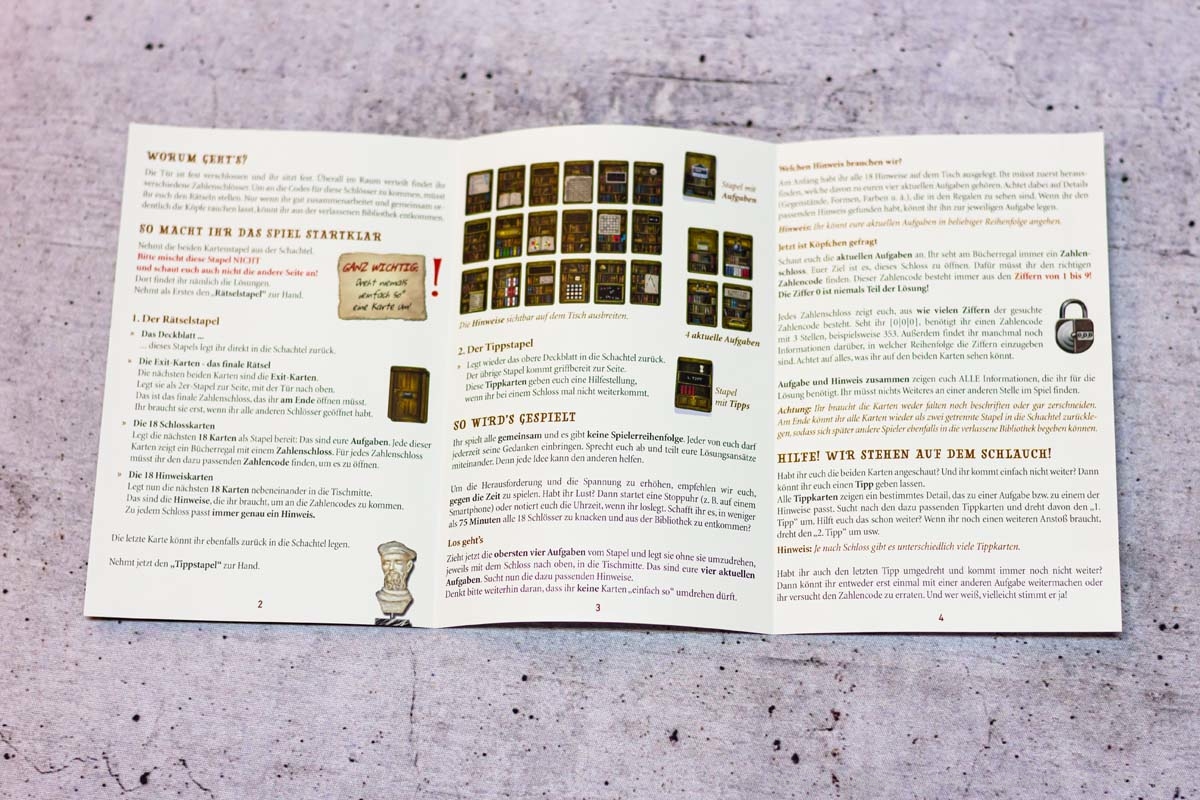 WORUM GEHT'S?
Die Tür ist fest verschlossen und ihr sitzt fest. Überall im Raum verteilt findet ihr
verschiedene Zahlenschlösser. Um an die Codes für diese Schlösser zu kommen, müsst
ihr euch den Rätseln stellen. Nur wenn ihr gut zusammenarbeitet und gemeinsam or-
dentlich die Köpfe rauchen lasst, könnt ihr aus der verlassenen Bibliothek entkommen.
SO MACHT IHR DAS SPIEL STARTKLAR
Nehmt die beiden Kartenstapel aus der Schachtel.
Bitte mischt diese Stapel NICHT
und schaut euch auch nicht die andere Seite an!
Dort findet ihr nämlich die Lösungen.
Nehmt als Erstes den „Rätselstapel" zur Hand.
GANZ WICHTIG:
Dreht niemals
„einfach so"
eine Karte um!
!
1. Der Rätselstapel
» Das Deckblatt ...
... dieses Stapels legt ihr direkt in die Schachtel zurück.
» Die Exit-Karten - das finale Rätsel
Die nächsten beiden Karten sind die Exit-Karten.
Legt sie als 2er-Stapel zur Seite, mit der Tür nach oben.
Das ist das finale Zahlenschloss, das ihr am Ende öffnen müsst.
Ihr braucht sie erst, wenn ihr alle anderen Schlösser geöffnet habt.
» Die 18 Schlosskarten
Legt die nächsten 18 Karten als Stapel bereit: Das sind eure Aufgaben. Jede dieser
Karten zeigt ein Bücherregal mit einem Zahlenschloss. Für jedes Zahlenschloss
müsst ihr den dazu passenden Zahlencode finden, um es zu öffnen.
» Die 18 Hinweiskarten
Legt nun die nächsten 18 Karten nebeneinander in die Tischmitte.
Das sind die Hinweise, die ihr braucht, um an die Zahlencodes zu kommen.
Zu jedem Schloss passt immer genau ein Hinweis.
Die letzte Karte könnt ihr ebenfalls zurück in die Schachtel legen.
Nehmt jetzt den „Tippstapel" zur Hand.
2
Stapel mit
Aufgaben
Die Hinweise sichtbar auf dem Tisch ausbreiten.
4 aktuelle Aufgaben
2. Der Tippstapel
» Legt wieder das obere Deckblatt in die Schachtel zurück.
Der übrige Stapel kommt griffbereit zur Seite.
Diese Tippkarten geben euch eine Hilfestellung,
wenn ihr bei einem Schloss mal nicht weiterkommt.
1. TIPP
Stapel
mit Tipps
SO WIRD'S GESPIELT
Ihr spielt alle gemeinsam und es gibt keine Spielerreihenfolge. Jeder von euch darf
jederzeit seine Gedanken einbringen. Sprecht euch ab und teilt eure Lösungsansätze
miteinander. Denn jede Idee kann den anderen helfen.
Um die Herausforderung und die Spannung zu erhöhen, empfehlen wir euch,
gegen die Zeit zu spielen. Habt ihr Lust? Dann startet eine Stoppuhr (z. B. auf einem
Smartphone) oder notiert euch die Uhrzeit, wenn ihr loslegt. Schafft ihr es, in weniger
als 75 Minuten alle 18 Schlösser zu knacken und aus der Bibliothek zu entkommen?
Los geht's
Zieht jetzt die obersten vier Aufgaben vom Stapel und legt sie ohne sie umzudrehen,
jeweils mit dem Schloss nach oben, in die Tischmitte. Das sind eure vier aktuellen
Aufgaben. Sucht nun die dazu passenden Hinweise.
Denkt bitte weiterhin daran, dass ihr keine Karten „einfach so" umdrehen dürft.
3
Welchen Hinweis brauchen wir?
Am Anfang habt ihr alle 18 Hinweise auf dem Tisch ausgelegt. Ihr müsst zuerst heraus-
finden, welche davon zu euren vier aktuellen Aufgaben gehören. Achtet dabei auf Details
(Gegenstände, Formen, Farben u. ä.), die in den Regalen zu sehen sind. Wenn ihr den
passenden Hinweis gefunden habt, könnt ihr ihn zur jeweiligen Aufgabe legen.
Hinweis: Ihr könnt eure aktuellen Aufgaben in beliebiger Reihenfolge angehen.
Jetzt ist Köpfchen gefragt
Schaut euch die aktuellen Aufgaben an. Ihr seht am Bücherregal immer ein Zahlen-
schloss. Euer Ziel ist es, dieses Schloss zu öffnen. Dafür müsst ihr den richtigen
Zahlencode finden. Dieser Zahlencode besteht immer aus den Ziffern von 1 bis 9!
Die Ziffer 0 ist niemals Teil der Lösung!
Jedes Zahlenschloss zeigt euch, aus wie vielen Ziffern der gesuchte
Zahlencode besteht. Seht ihr [0|0|0], benötigt ihr einen Zahlencode
mit 3 Stellen, beispielsweise 353. Außerdem findet ihr manchmal noch
Informationen darüber, in welcher Reihenfolge die Ziffern einzugeben
sind. Achtet auf alles, was ihr auf den beiden Karten sehen könnt.
Aufgabe und Hinweis zusammen zeigen euch ALLE Informationen, die ihr für die
Lösung benötigt. Ihr müsst nichts Weiteres an einer anderen Stelle im Spiel finden.
Achtung: Ihr braucht die Karten weder falten noch beschriften oder gar zerschneiden.
Am Ende könnt ihr alle Karten wieder als zwei getrennte Stapel in die Schachtel zurückle-
gen, sodass sich später andere Spieler ebenfalls in die verlassene Bibliothek begeben können.
HILFE! WIR STEHEN AUF DEM SCHLAUCH!
Habt ihr euch die beiden Karten angeschaut? Und ihr kommt einfach nicht weiter? Dann
könnt ihr euch einen Tipp geben lassen.
Alle Tippkarten zeigen ein bestimmtes Detail, das zu einer Aufgabe bzw. zu einem der
Hinweise passt. Sucht nach den dazu passenden Tippkarten und dreht davon den „1.
Tipp" um. Hilft euch das schon weiter? Wenn ihr noch einen weiteren Anstoß braucht,
dreht den „2. Tipp" um usw.
Hinweis: Je nach Schloss gibt es unterschiedlich viele Tippkarten.
Habt ihr auch den letzten Tipp umgedreht und kommt immer noch nicht weiter?
Dann könnt ihr entweder erst einmal mit einer anderen Aufgabe weitermachen oder
ihr versucht den Zahlencode zu erraten. Und wer weiß, vielleicht stimmt er ja!
4